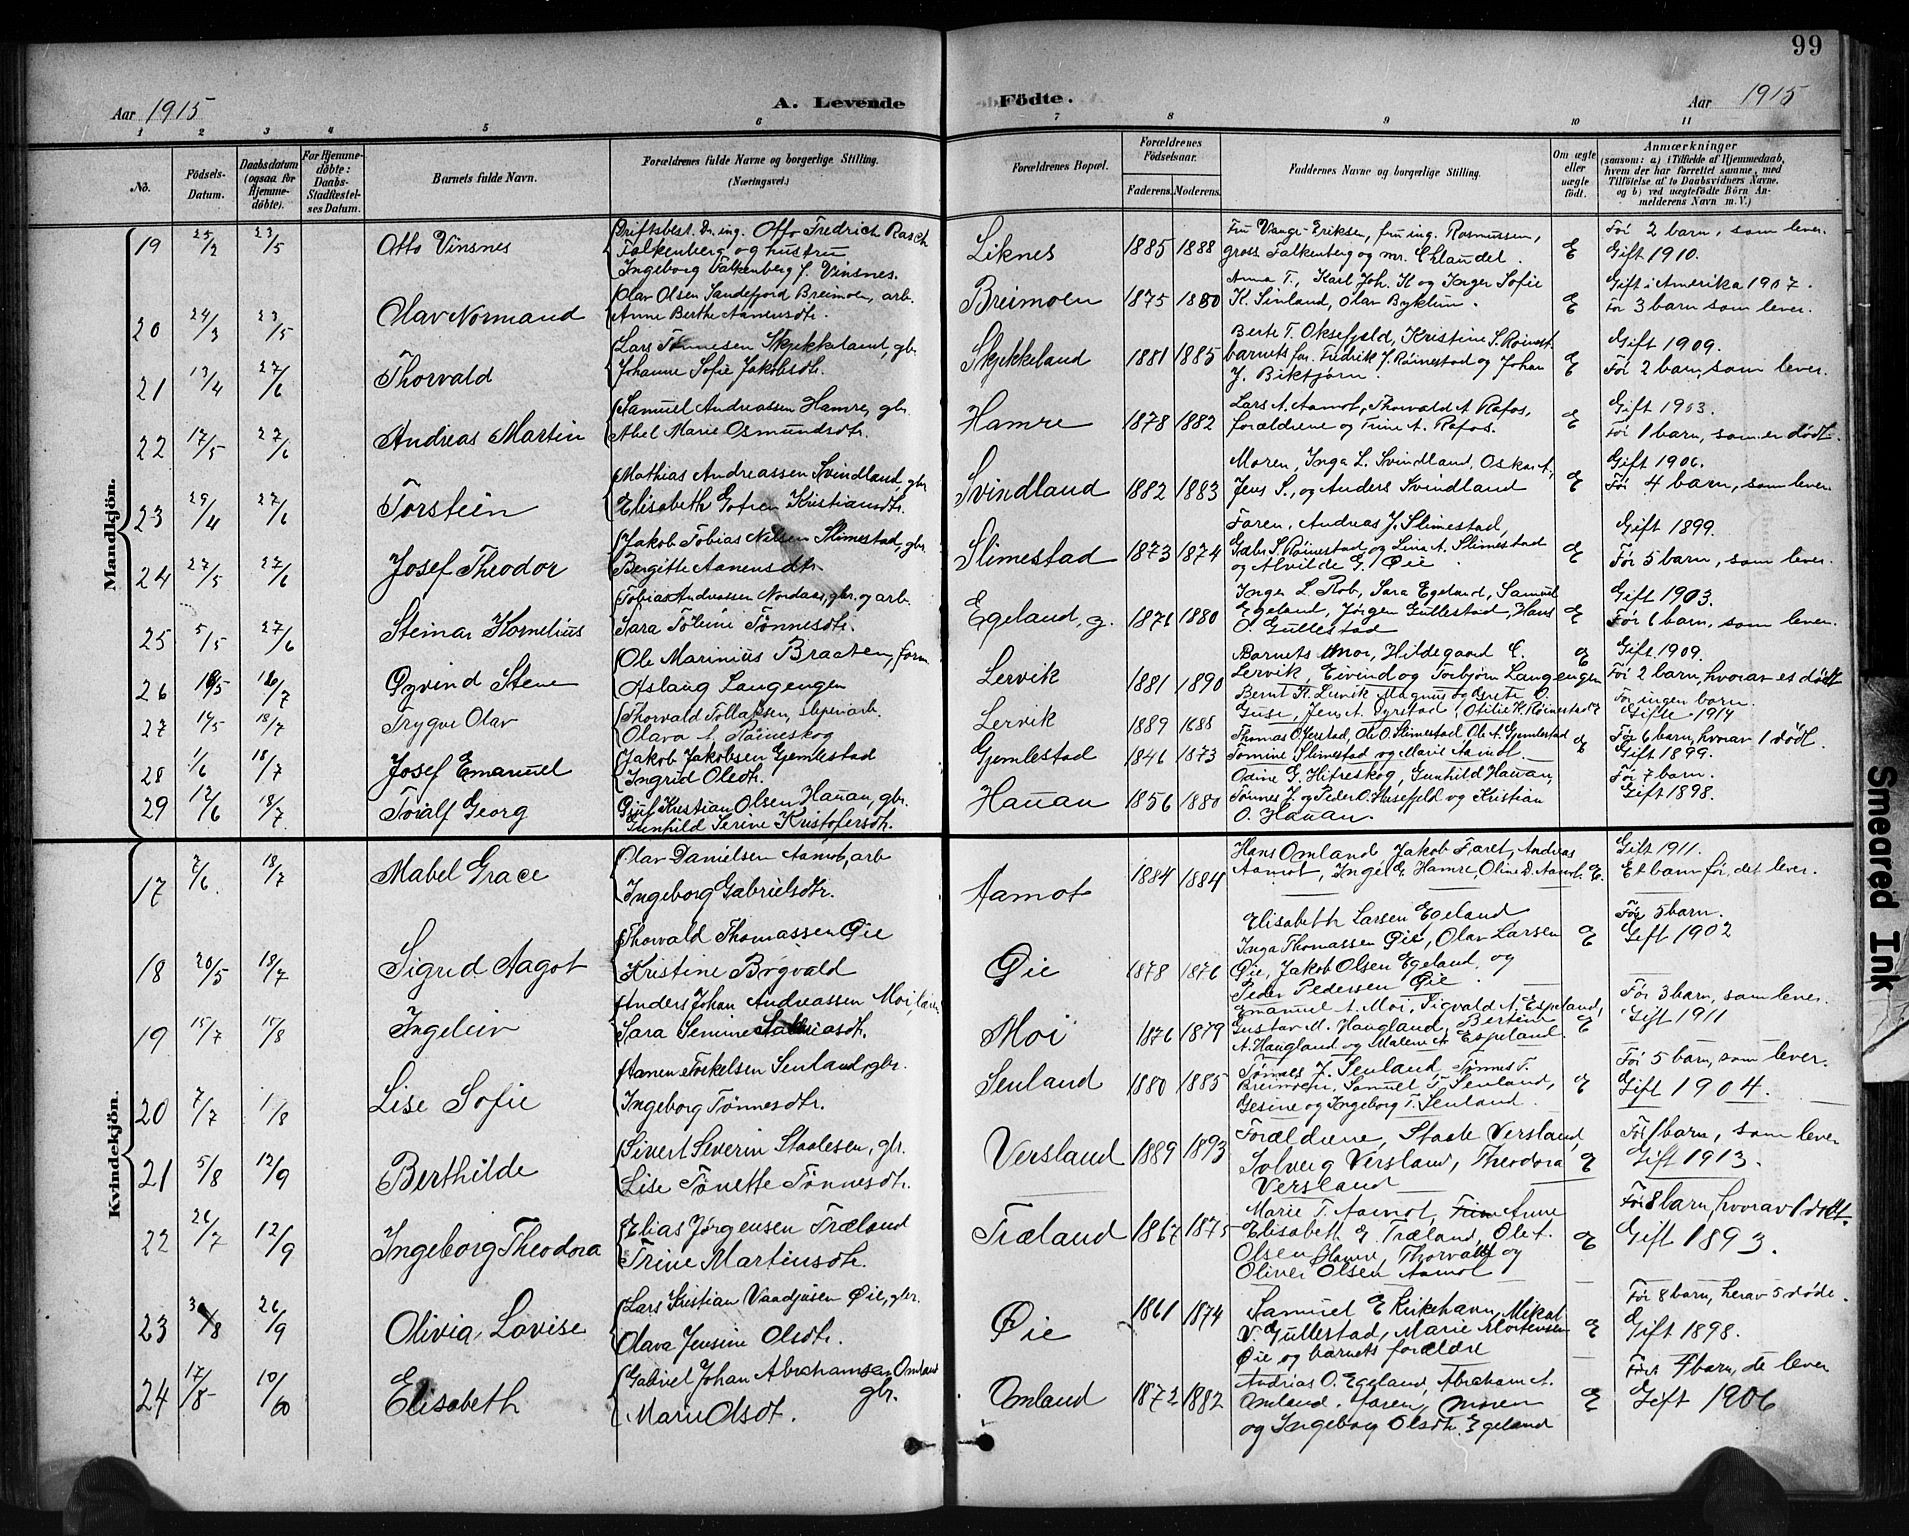 99
Aar 1915 A. Levende Födte. Aar 1915
1 2 3 4 5 6 7 8 9 10 11
No. Födsels-Datum. Daabsdatum (ogsaa for Hjemme-döbte). For Hjemme-döbte: Daabs-Stadfæstel-ses Datum. Barnets fulde Navn. Forældrenes fulde Navne og borgerlige Stilling. (Næringsvei.) Forældrenes Bopæl. Forældrenes Födselsaar. Faderens. Moderens. Faddernes Navne og borgerlige Stilling. Om ægte eller uægte födt. Anmærkninger (saasom: a) i Tilfælde af Hjemmedaab, hvem der har forrettet samme, med Tilföielse af to Daabsvidners Navne. og b) ved uægtefödte Börn An-melderens Navn m. V.)
Mandkjön.
19 25/2 23/5 Otto Vinsnes
Driftsbest. Dr. ing. Otto Fredrich Rasch
Falkenberg og hustru
Ingeborg Falkenberg f. Vinsnes.
Liknes 1885 1888
Fru Vange-Eriksen, fru ing. Rasmussen,
gross. Falkenberg og mr. Chlaudel.
E
Før 2 barn, som lever.
Gift 1910.
20 24/3 23/5 Olav Normand
Olav Olsen Sandefjord Breimoen, arb.
Anne Berthe Aanensdtr.
Breimoen 1875 1880
Anna T., Karl Joh. K og Inger Sofie
K. Sinland, Olav Byklum.
E
Gift i Amerika 1907.
Før 3 barn, som lever.
21 13/4 27/6 Thorvald
Lars Tønnesen Skjekkeland, gbr.
Johanne Sofie Jakobsdtr.
Skjekkeland 1881 1885
Berte T. Oksefjeld, Kristine S. Røinest.
barnets far. Fredrik J. Røinestad og Johan
J. Biktjørn.
E
Gift 1909.
Før 2 barn, som lever.
22 17/5 27/6 Andreas Martin
Samuel Andreassen Hamre, gbr.
Abel Marie Osmundsdtr.
Hamre 1878 1882
Lars A. Aamot, Thorvald A. Rafos,
forældrene og Trine A. Rafos.
E
Gift 1903.
Før 1 barn, som er dødt.
23 29/4 27/6 Torstein
Mathias Andreassen Svindland, gbr.
Elisabeth Gofien Kristiansdtr.
Svindland 1882 1883
Moren, Inga L. Svindland, Oskar A,
Jens S., og Anders Svindland
E
Gift 1906.
Før 4 barn, som lever.
24 27/5 27/6 Josef Theodor
Jakob Tobias Nilsen Slimestad, gbr.
Bergitte Aanensdtr.
Slimestad 1873 1874
Faren, Andreas J. Slimestad,
Gabr. S. Røinestad og Lina A. Slimestad
og Alvilde G. Øie.
E
Gift 1899.
Før 5 barn, som lever.
25 5/5 27/6 Steinar Kornelius
Tobias Andreassen Nordaas, gbr. og arb.
Sara Toline Tønnesdtr.
Egeland, g. 1876 1880
Inger L. Rob, Sara Egeland, Samuel
Egeland, Jørgen Gullestad, Hans
O. Gullestad
E
Gift 1903.
Før 6 barn, som lever.
26 18/7 Øyvind Stene
Ole Marinius Braaten, form.
Aslaug Langengen
Lervik 1881 1890
Barnets mor, Hildegaard C.
Lervik, Eivind og Torbjørn Langengen
E
Gift 1909.
Før 2 barn, hvorav et dødt
27 14/5 18/7 Trygve Olav
Thorvald Tollaksen, sliperiarb.
Olava A. Røineskog
Lervik 1889 1888
Bernt K. Lervik Magnus og Grete O.
Guse, Jens A. Dyrstad, Otilie K. Røinestad
E
Før ingen barn.
Gifte 1914
28 1/6 18/7 Josef Emanuel
Jakob Jakobsen Gjemlestad
Ingrid Olsdtr.
Gjemlestad 1846 1873
Thomas O. Jerstad, Ole O. Slimestad Ole A. Gjemlestad
Tomine Slimestad og Marie Aamot.
Før 6 barn, hvorav 1 dødt.
Gift 1899.
29 12/6 18/7 Toralf Georg
Gjul Kristian Olsen Hauan, gbr.
Gunhild Serine Kristofersdtr.
Hauan 1856 1880
Odine G. Hitreskog, Gunhild Hauan,
Tønnes J. og Peder O. Husefjeld og Kristian
O. Hauan.
Før 7 barn.
Gift 1898.
Kvindekjön.
17 2/6 18/7 Mabel Grace
Olav Danielsen Aamot, arb
Ingeborg Gabrielsdtr.
Aamot 1884 1884
Hans Omland Jakob Faret, Andreas
Aamot, Ingel E. Hamre, Oline D. Aamot.
E.
Gift 1911.
Et barn før, det lever.
18 20/5 18/7 Sigrid Aagot
Thorvald Thomassen Øie
Kristine Bøgvald
Øie 1878 1876
Elisabeth Larsen Egeland
Inga Thomassen Øie, Olav Larsen
Øie, Jakob Olsen Egeland, og
Peder Pedersen Øie
E
Før 5 barn.
Gift 1902
19 15/7 15/8 Ingeleiv
Anders Johan Andreassen Moi,
Sara Semine
Moi 1876 1879
Emanuel A. Moi, Sigvald A. Espeland,
Gustav M. Haugland, Bertine
A. Haugland og Malene A. Espeland.
E
Før 3 barn, som lever.
Gift 1911
20 7/7 Lise Sofie
Aanen Torkelsen Senland, gbr.
Ingeborg Tønnesdtr.
Senland 1880 1885
Tønnes J. Senland, Tønnes T.
Breimoen, Samuel T. Senland,
Gesine og Ingeborg T. Senland.
E
Før 5 barn, som lever.
Gift 1904.
21 5/8 12/9 Berthilde
Sivert Severin Staalesen, gbr.
Lise Tonette Tønnesdtr.
Versland 1889 1893
Forældrene, Staale Versland,
Solveig Versland, Theodora
Versland
E
Før 1 barn, som lever
Gift 1913.
22 26/7 12/9 Ingeborg Theodora
Elias Jørgensen Træland
Trine Martinsdtr.
Træland 1867 1875
Marie T. Aamot, Anne
Elisabeth E. Træland, Ole A.
Olsen Hamre, Thorvald og
Oliver Olsen Aamot
E
Før 8 barn, hvorav 1 dødt.
Gift 1893.
23 26/9 Olivia Lovise
Lars Kristian Vaadjusen Øie, gbr.
Olava Jensine Olsdtr.
Øie 1861 1874
Samuel E Kirkehavn, Mikal
V. Gullestad, Marie Mortensen
Øie og barnets forældre
E
Før 8 barn, herav 5 døde.
Gift 1898.
24 17/8 10/10 Elisabeth
Gabriel Johan Abrahamsen Omland
gbr.
Marie Olsdt.
Omland 1872 1882
Andrias O. Egeland, Abraham A.
Omland. faren, moren
og Ingeborg Olsdtr. Egeland
E
Før 4 barn, de lever
Gift 1906
Smeared Ink